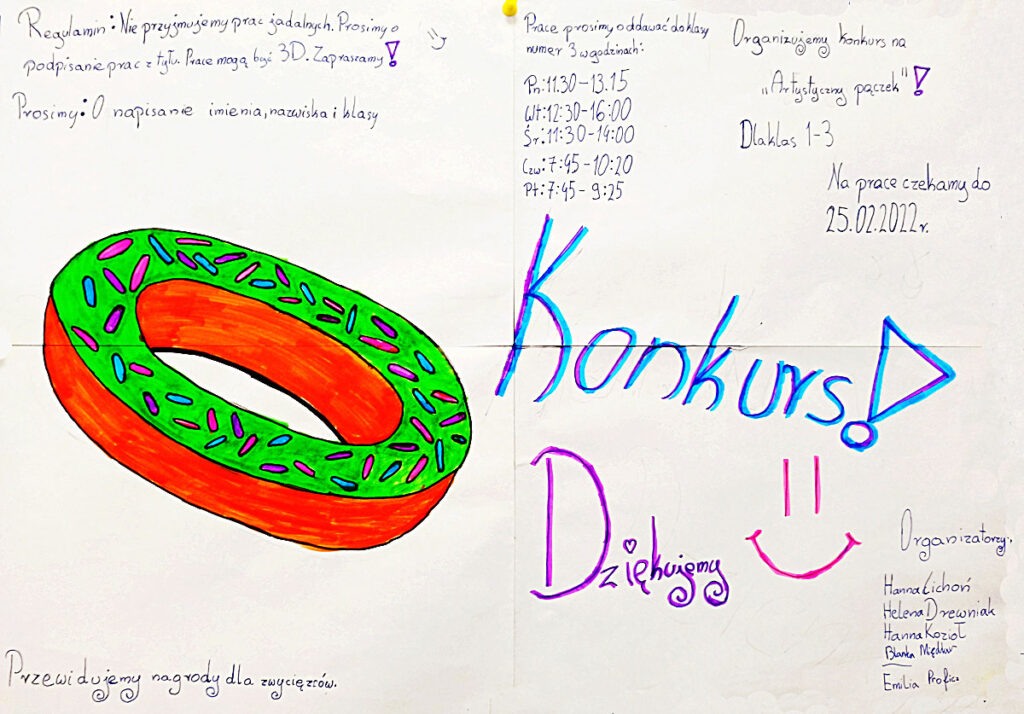 Regulamin: Nie przyjmujemy prac jadalnych. Prosimy o
podpisanie prac z tyłu. Prace mogą być 3D. Zapraszamy!
Prosimy: O napisanie imienia, nazwiska i klasy
Prace prosimy oddawać do klasy
numer 3 w godzinach:
Pn: 11.30-13.15
Wt: 12:30-16:00
Śr: 11:30-14:00
Czw: 7:45-10:20
Pt: 7:45-9:25
Organizujemy konkurs na
"Artystyczny pączek"!
Dla klas 1-3
Na prace czekamy do
25.02.2022r.
Konkurs!
Dziękujemy
Organizatorzy:
Hanna Lichoń
Helena Drewniak
Hanna Kozioł
Blanka
Emilia
Przewidujemy nagrody dla zwycięzców.